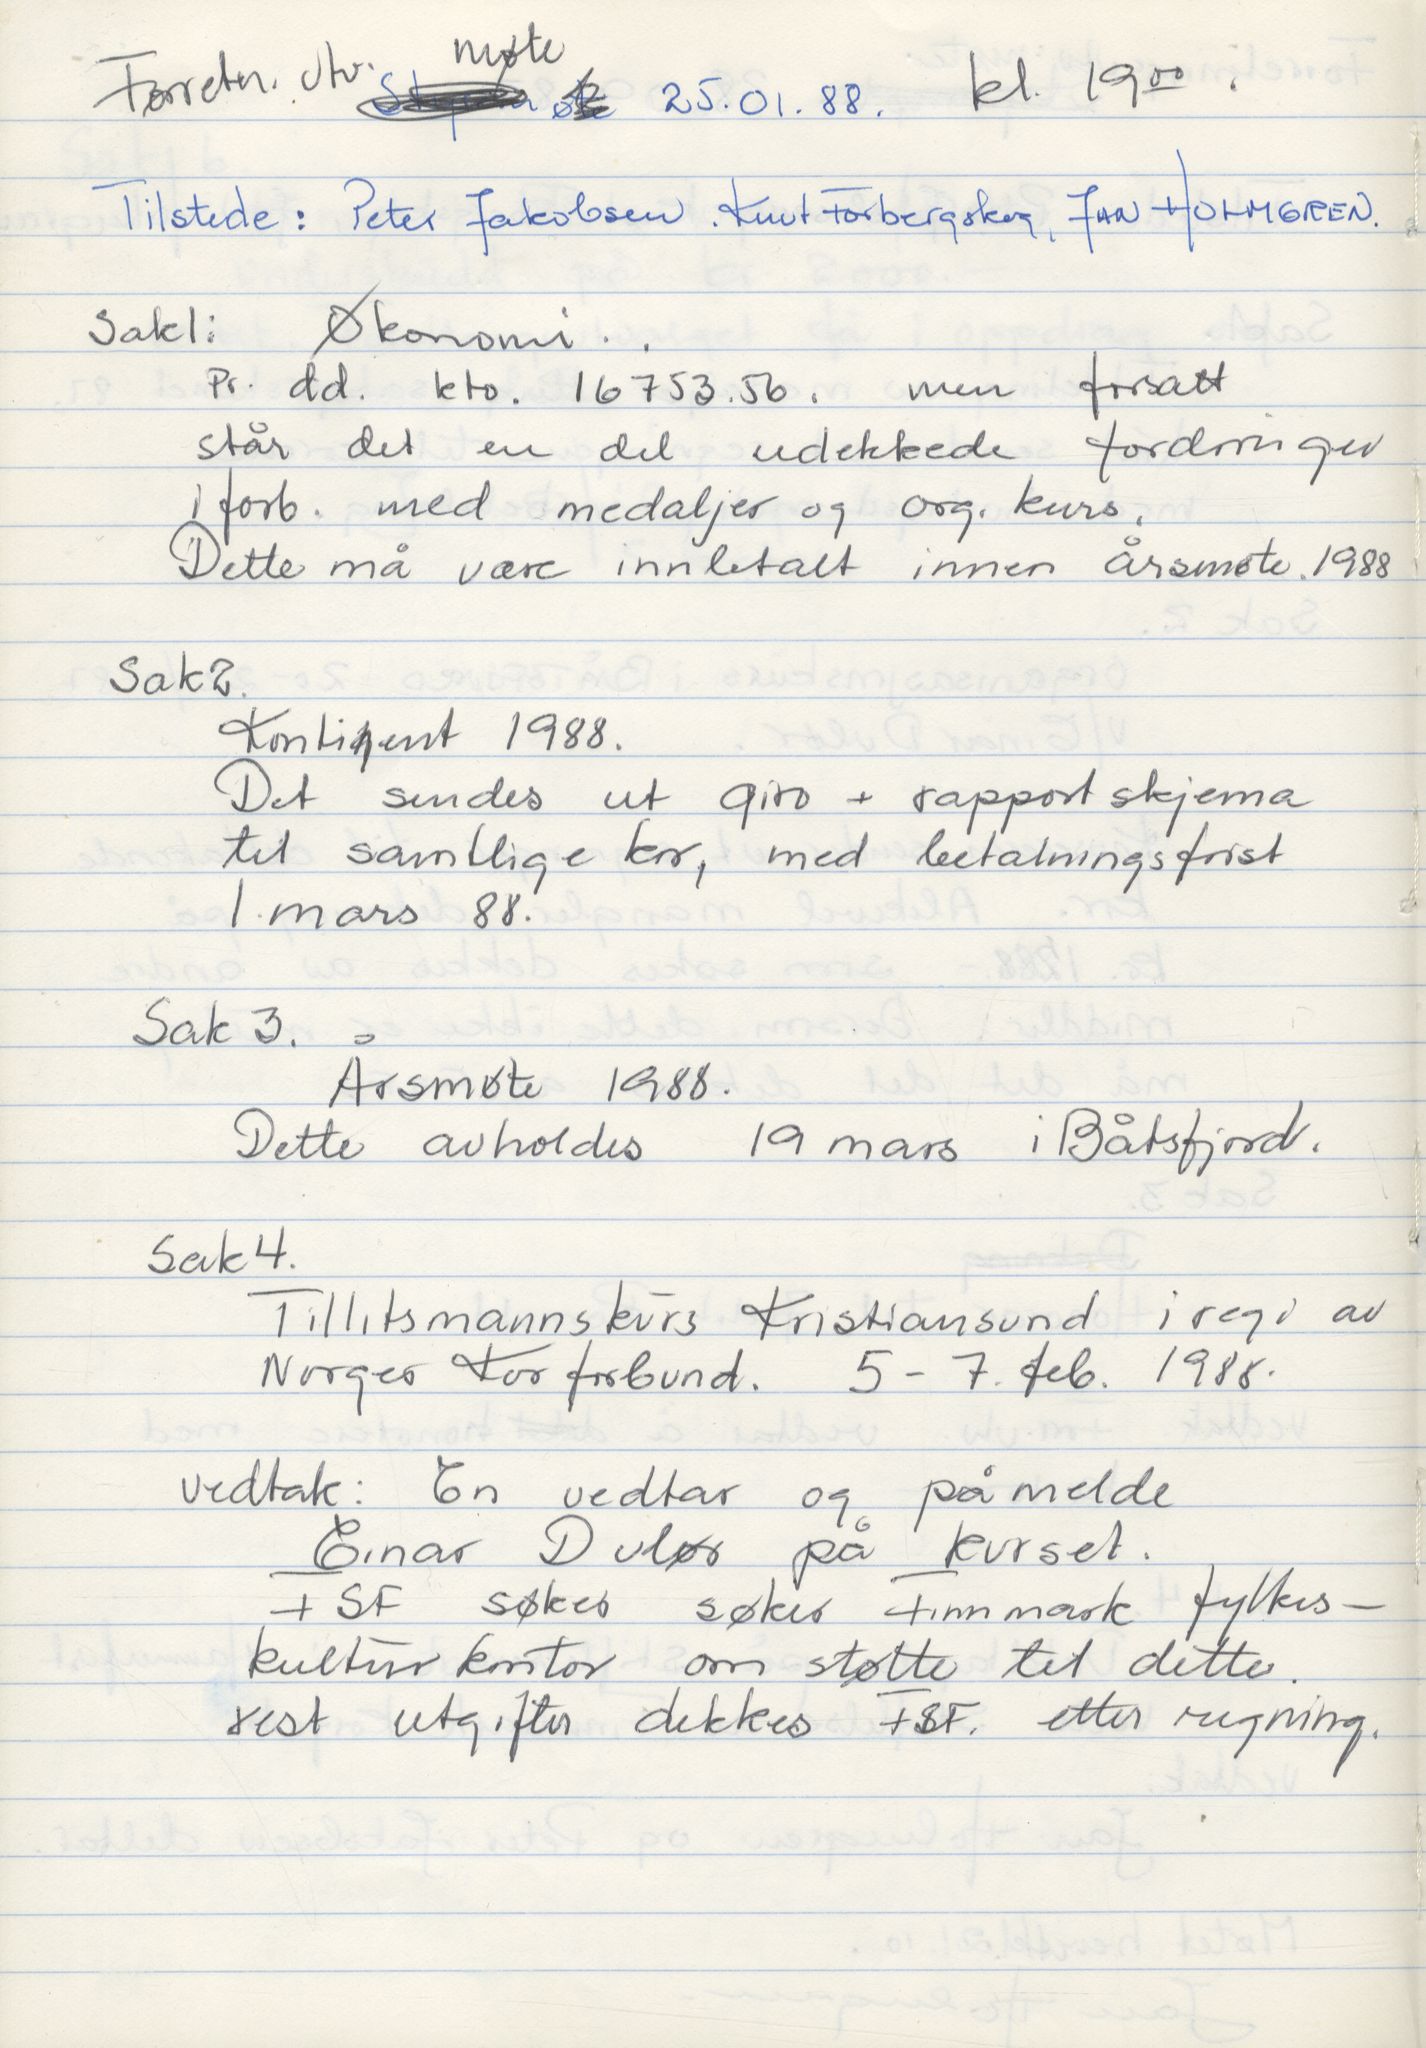 Forretn. utv. møte 25.01.88. kl. 19⁰⁰.
Tilstede: Peter Jakobsen. Knut Forbergskog, JAN HOLMGREN.
Sak1: Økonomi..
Pr. dd. kto. 16753.56. men forsatt
står det en del udekkede fordringer
i forb. med medaljer og org. kurs.
Dette må være innbetalt innen Årsmøte. 1988
Sak 2.
Kontigent 1988.
Det sendes ut giro + rapport skjema
til samtlige kor, med betalningsfrist
1. mars 88.
Sak 3.
Årsmøte 1988.
Dette avholdes 19 mars i Båtsfjord.
Sak 4.
Tillitsmannskurs Kristiansund i regi av
Norges Korforbund. 5 - 7. feb. 1988.
vedtak: En vedtar og påmelde
Einar Duløv på kurset.
FSF søkes søker Finnmark fylkes-
kulturkontor om støtte til dette.
rest utgifter dekkes FSF. etter regning.